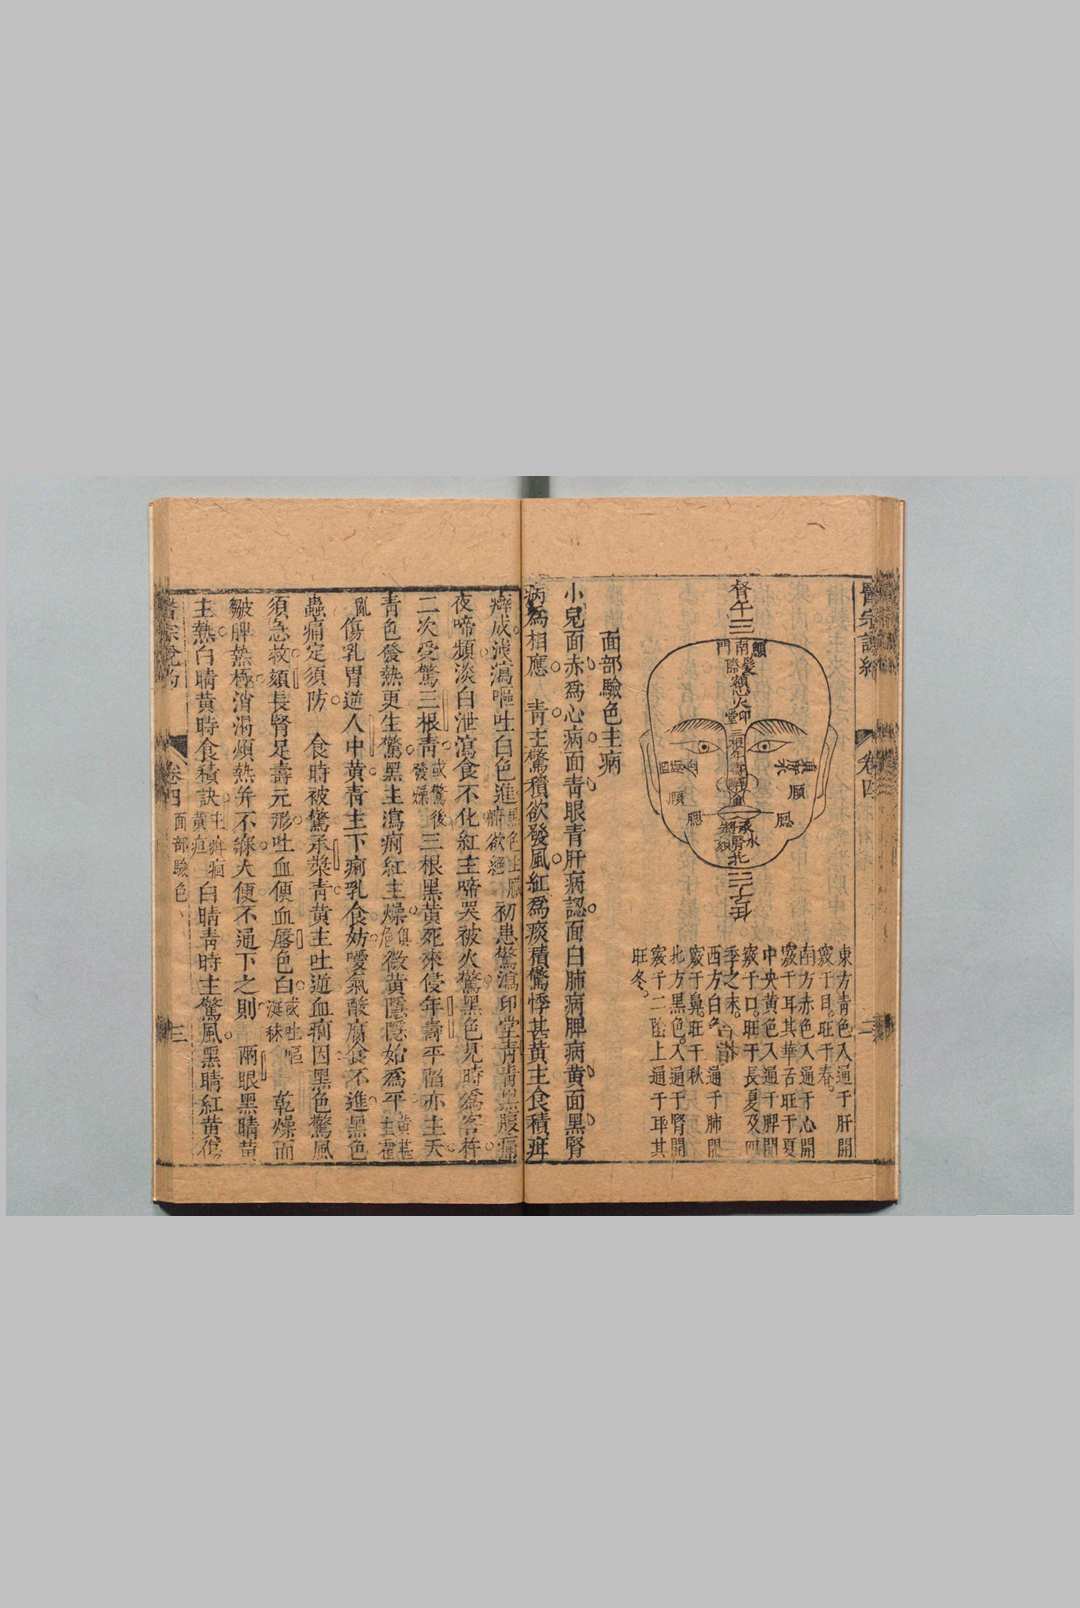 卷四
東方青色入通于肝開
竅于目旺于春。
南方赤色入通于心開
竅于耳其華舌旺于夏
中央黄色入通于脾開
竅于口。旺于長夏及四
季之末。
西方白色入通于肺開
竅于鼻。旺于秋
北方黒色。入通于腎開
竅于二陰上通于耳其
旺冬。
面部驗色主病
小兒面赤為心病面青眼青肝病認面白肺病脾病黄面黒腎
病為相應 青主驚積欲發風紅為痰積驚悸甚黄主食積
癖成泄瀉嘔吐白色進 初患驚瀉印堂青青黒腹痛
夜啼頻淡白泄瀉食不化紅主啼哭被火驚黒色見時為客忤
二次受驚三根青 或驚後發燥 三根黒黄死來侵年壽平陷亦主夭
青色發熱更生驚黒主瀉痢紅主燥 微黄隱隱始為平
傷乳胃逆人中黄青主下痢乳食妨噯氣酸腐食不進黒色
蟲痛定須防 食時被驚承漿青黄主吐逆血痢因黒色驚風
須急救頦長腎足壽元形吐血便血唇色白 或吐嘔 乾燥面
皺脾熱極消渴煩熱并不綠大便不通下之則 兩眼黒睛黄
主熱白睛黄時食積訣 主痺痼黄疸 白睛青時主驚風黒睛紅黄傷
卷四 面部驗色 三